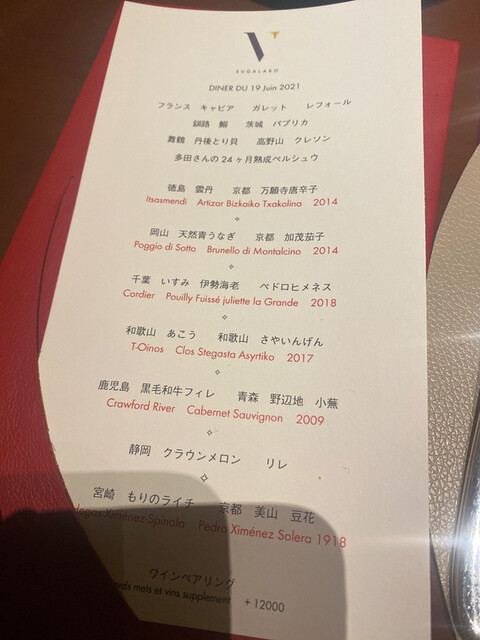 V
SUGALABO
DINER DU 19 Juin 2021
フランス キャビア ガレット レフォール
釧路 鰯 茨城 パプリカ
舞鶴 丹後とり貝 高野山 クレソン
多田さんの24ヶ月熟成ペルシュウ
徳島 雲丹 京都 万願寺唐辛子
Itsasmendi Artizar Bizkaiko Txakolina 2014
岡山 天然青うなぎ 京都 加茂茄子
Poggio di Sotto Brunello di Montalcino 2014
千葉 いすみ 伊勢海老 ペドロヒメネス
Cordier Pouilly Fuissé juliette la Grande 2018
和歌山 あこう 和歌山 さやいんげん
T-Oinos Clos Stegasta Asyrtiko 2017
鹿児島 黒毛和牛フィレ 青森 野辺地 小蕪
Crawford River Cabernet Sauvignon 2009
静岡 クラウンメロン リレ
宮崎 もりのライチ 京都 美山 豆花
Ximénez-Spinola Pedro Ximénez Solera 1918
ワインペアリング
mets et vins supplement +12000